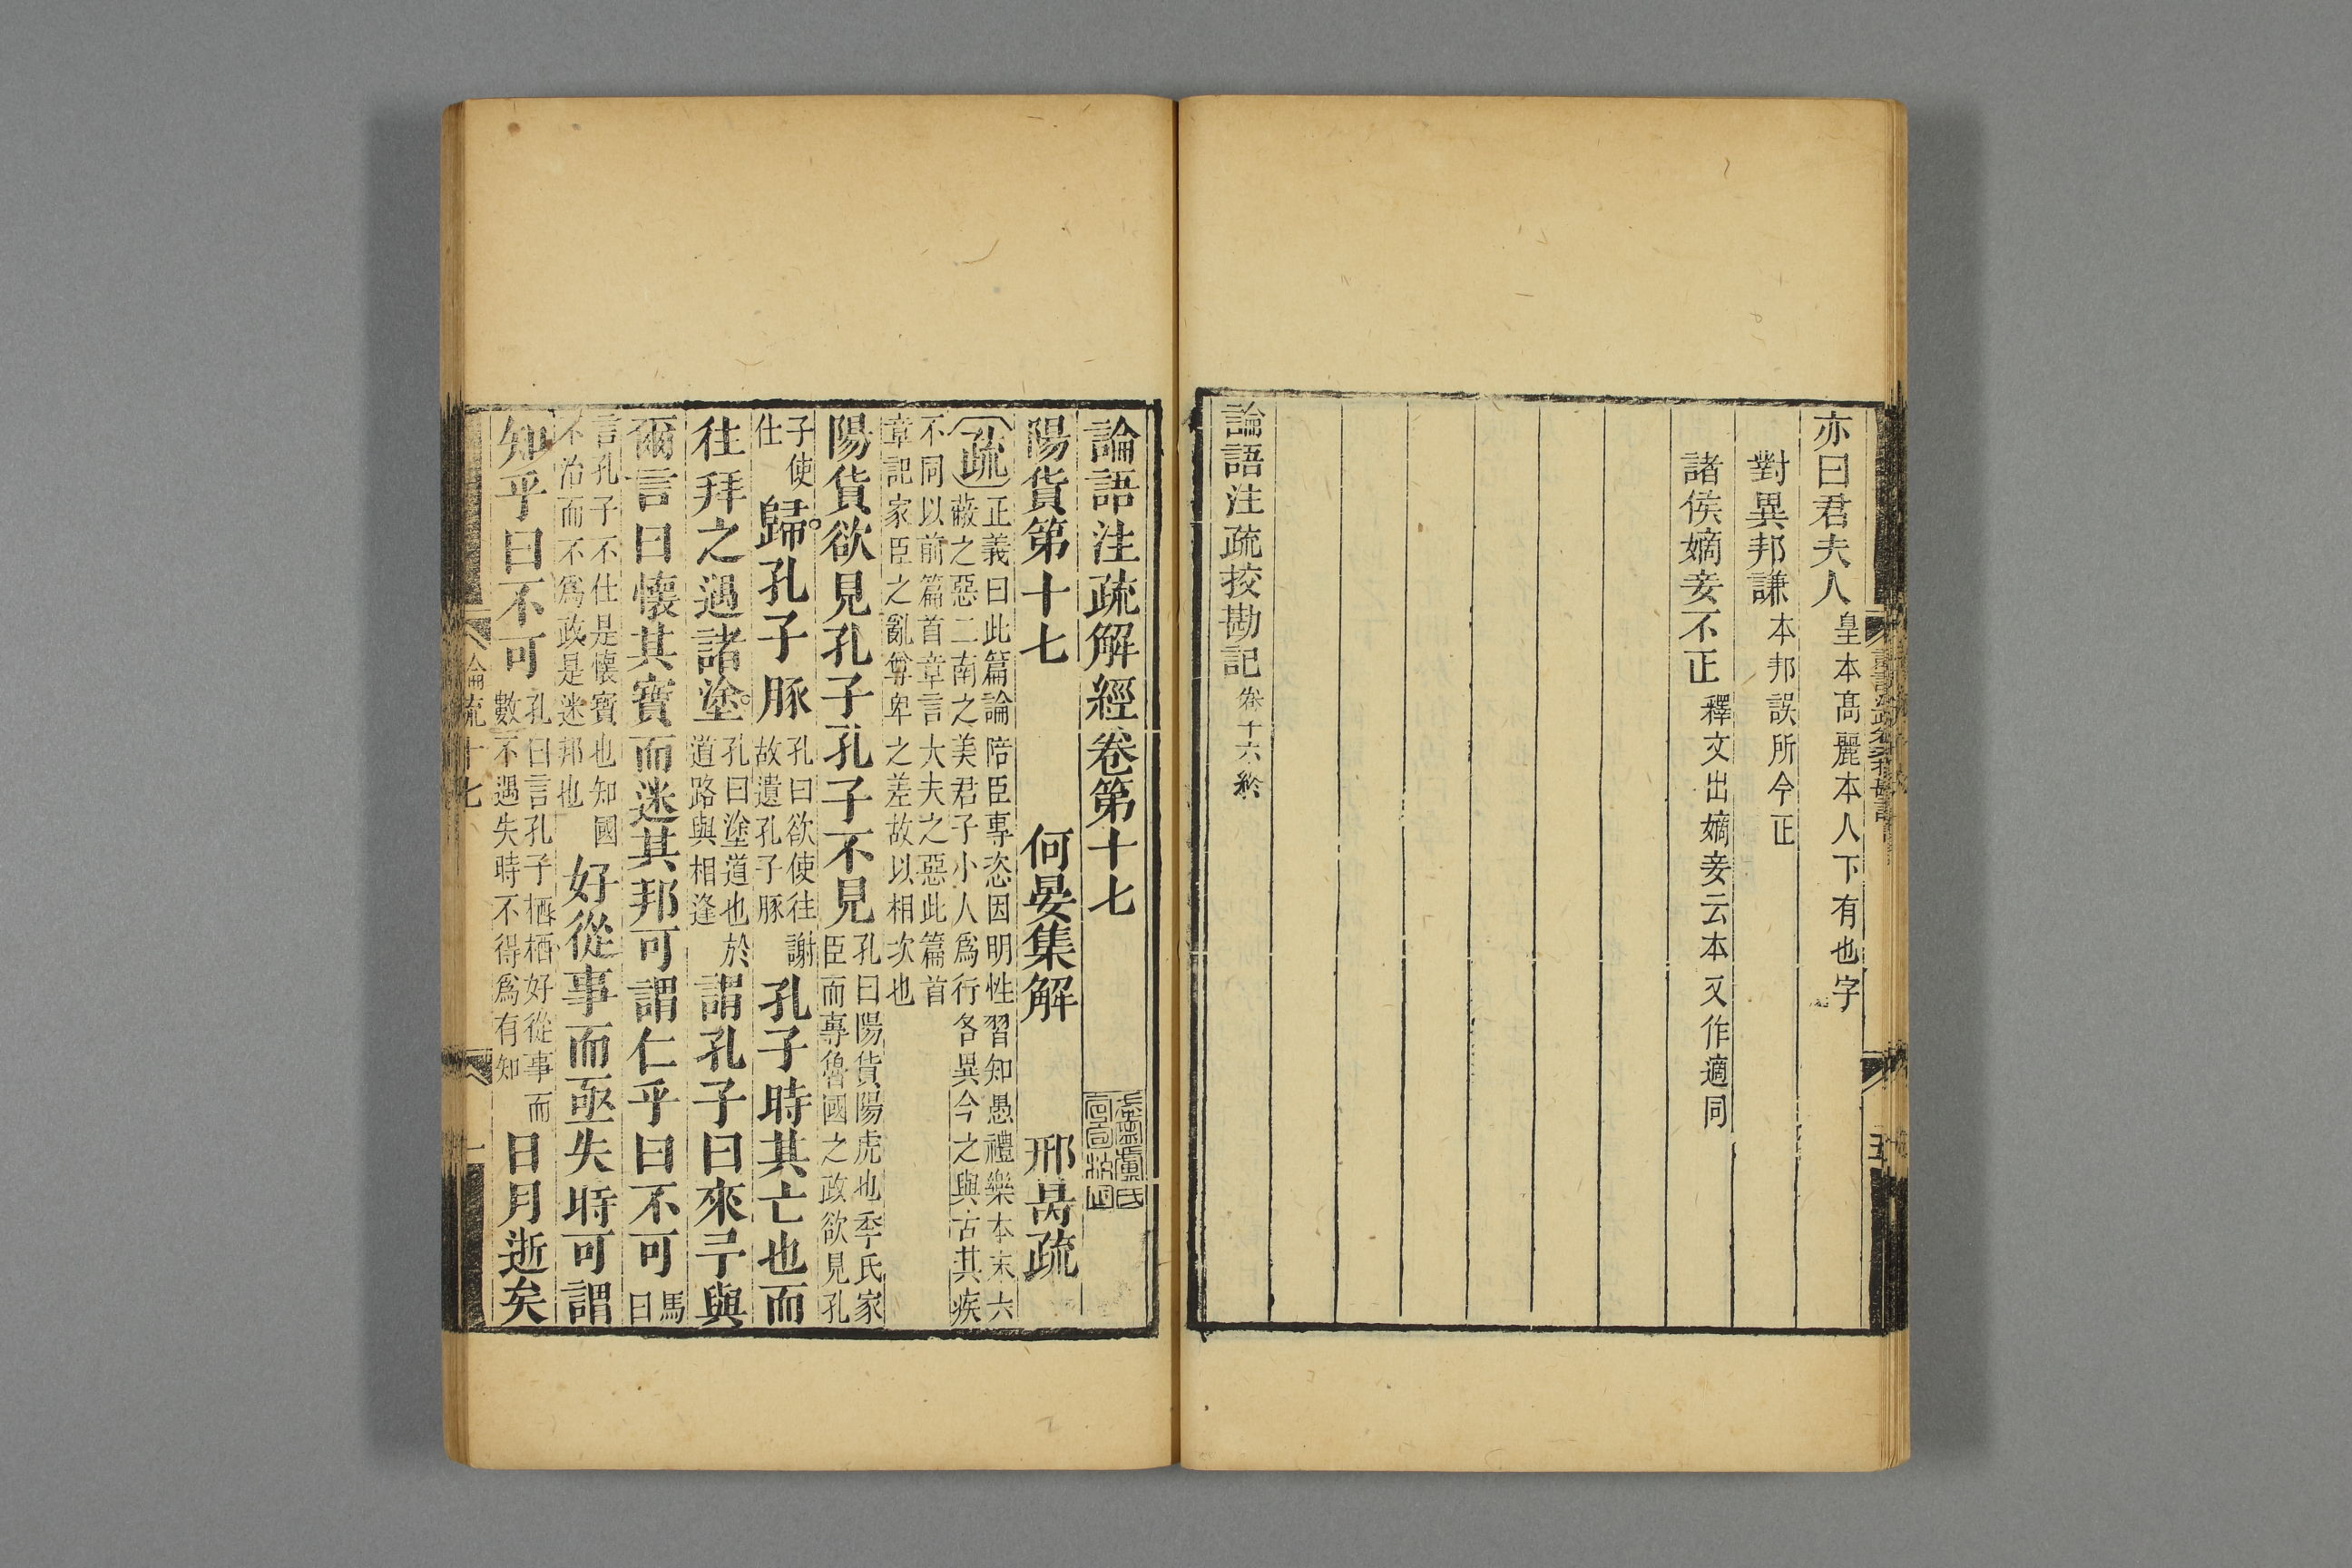 亦曰君夫人皇本高麗本人下有也字
對異邦謙本邦誤所今正
諸侯嫡妾不正釋文出嫡妾云本又作適同
論語注疏挍勘記卷十六終
論語注疏解經卷第十七
陽貨第十七 何晏集解 邢昺疏
疏正義曰此篇論陪臣專恣因明性習知愚禮樂本末六
蔽之惡二南之美君子小人爲行各異今之與古其疾
不同以前篇首章言大夫之惡此篇首
章記家臣之亂尊卑之差故以相次也
陽貨欲見孔子孔子不見孔曰陽貨陽虎也季氏家
臣而專魯國之政欲見孔
子使
仕
歸孔子豚孔曰欲使往謝
故遺孔子豚
孔子時其亡也而
往拜之遇諸塗孔曰塗道也於
道路與相逢
謂孔子曰來予與
爾言曰懷其寶而迷其邦可謂仁乎曰不可馬
曰
言孔子不仕是懷寶也知國
不治而不爲政是迷邦也
好從事而亟失時可謂
知乎曰不可孔曰言孔子栖栖好從事而
數不遇失時不得爲有知
日月逝矣
論疏十七
一